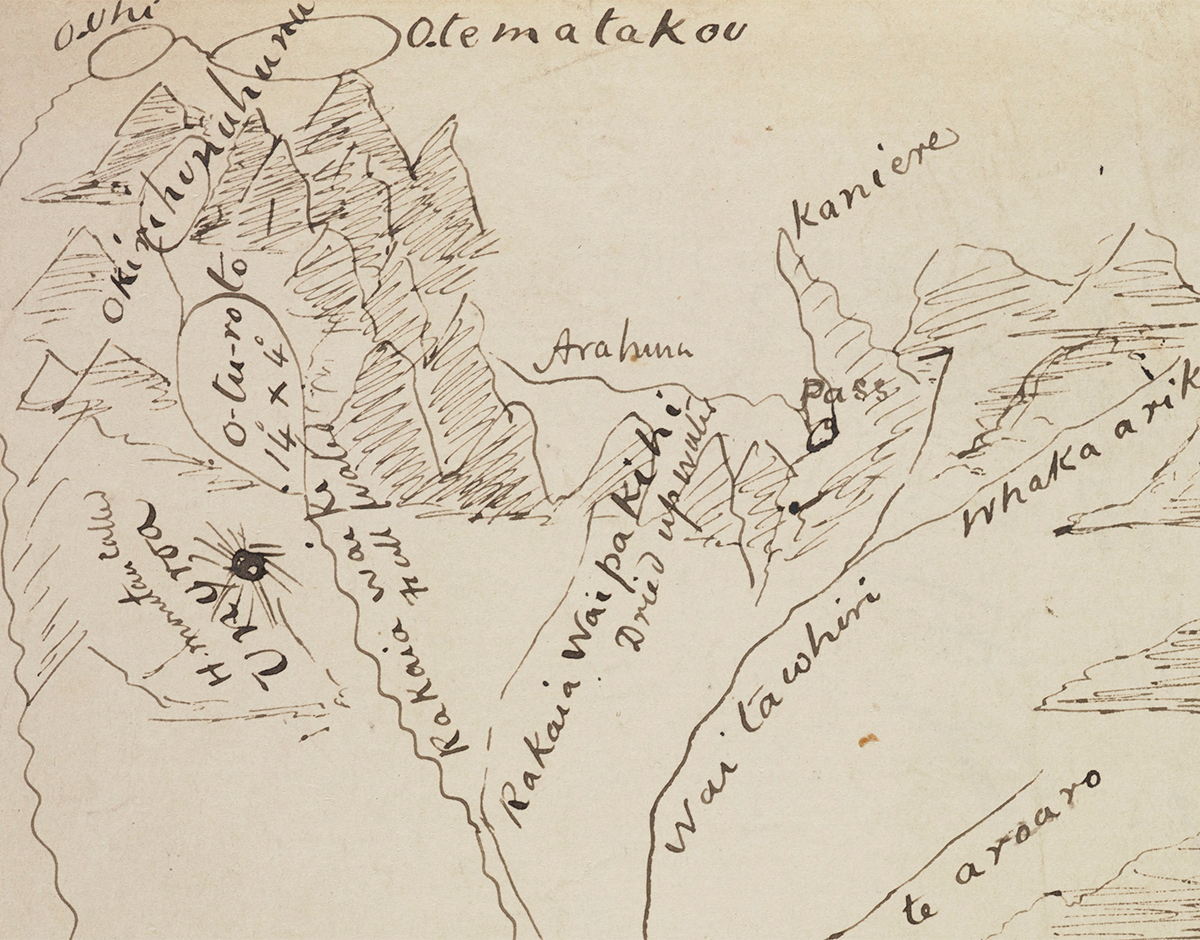 O.uhi
O.tematakou
Okirihonuhunu
Kaniere
O-tu-roto
1¼ × ¼
Arahuna
pass
Whaka arik
H mountain called
Ura
Rakaia wai Ki
full water
Rakaia Waipakihi
Dried up water
Wai tawhiri
te aroaro